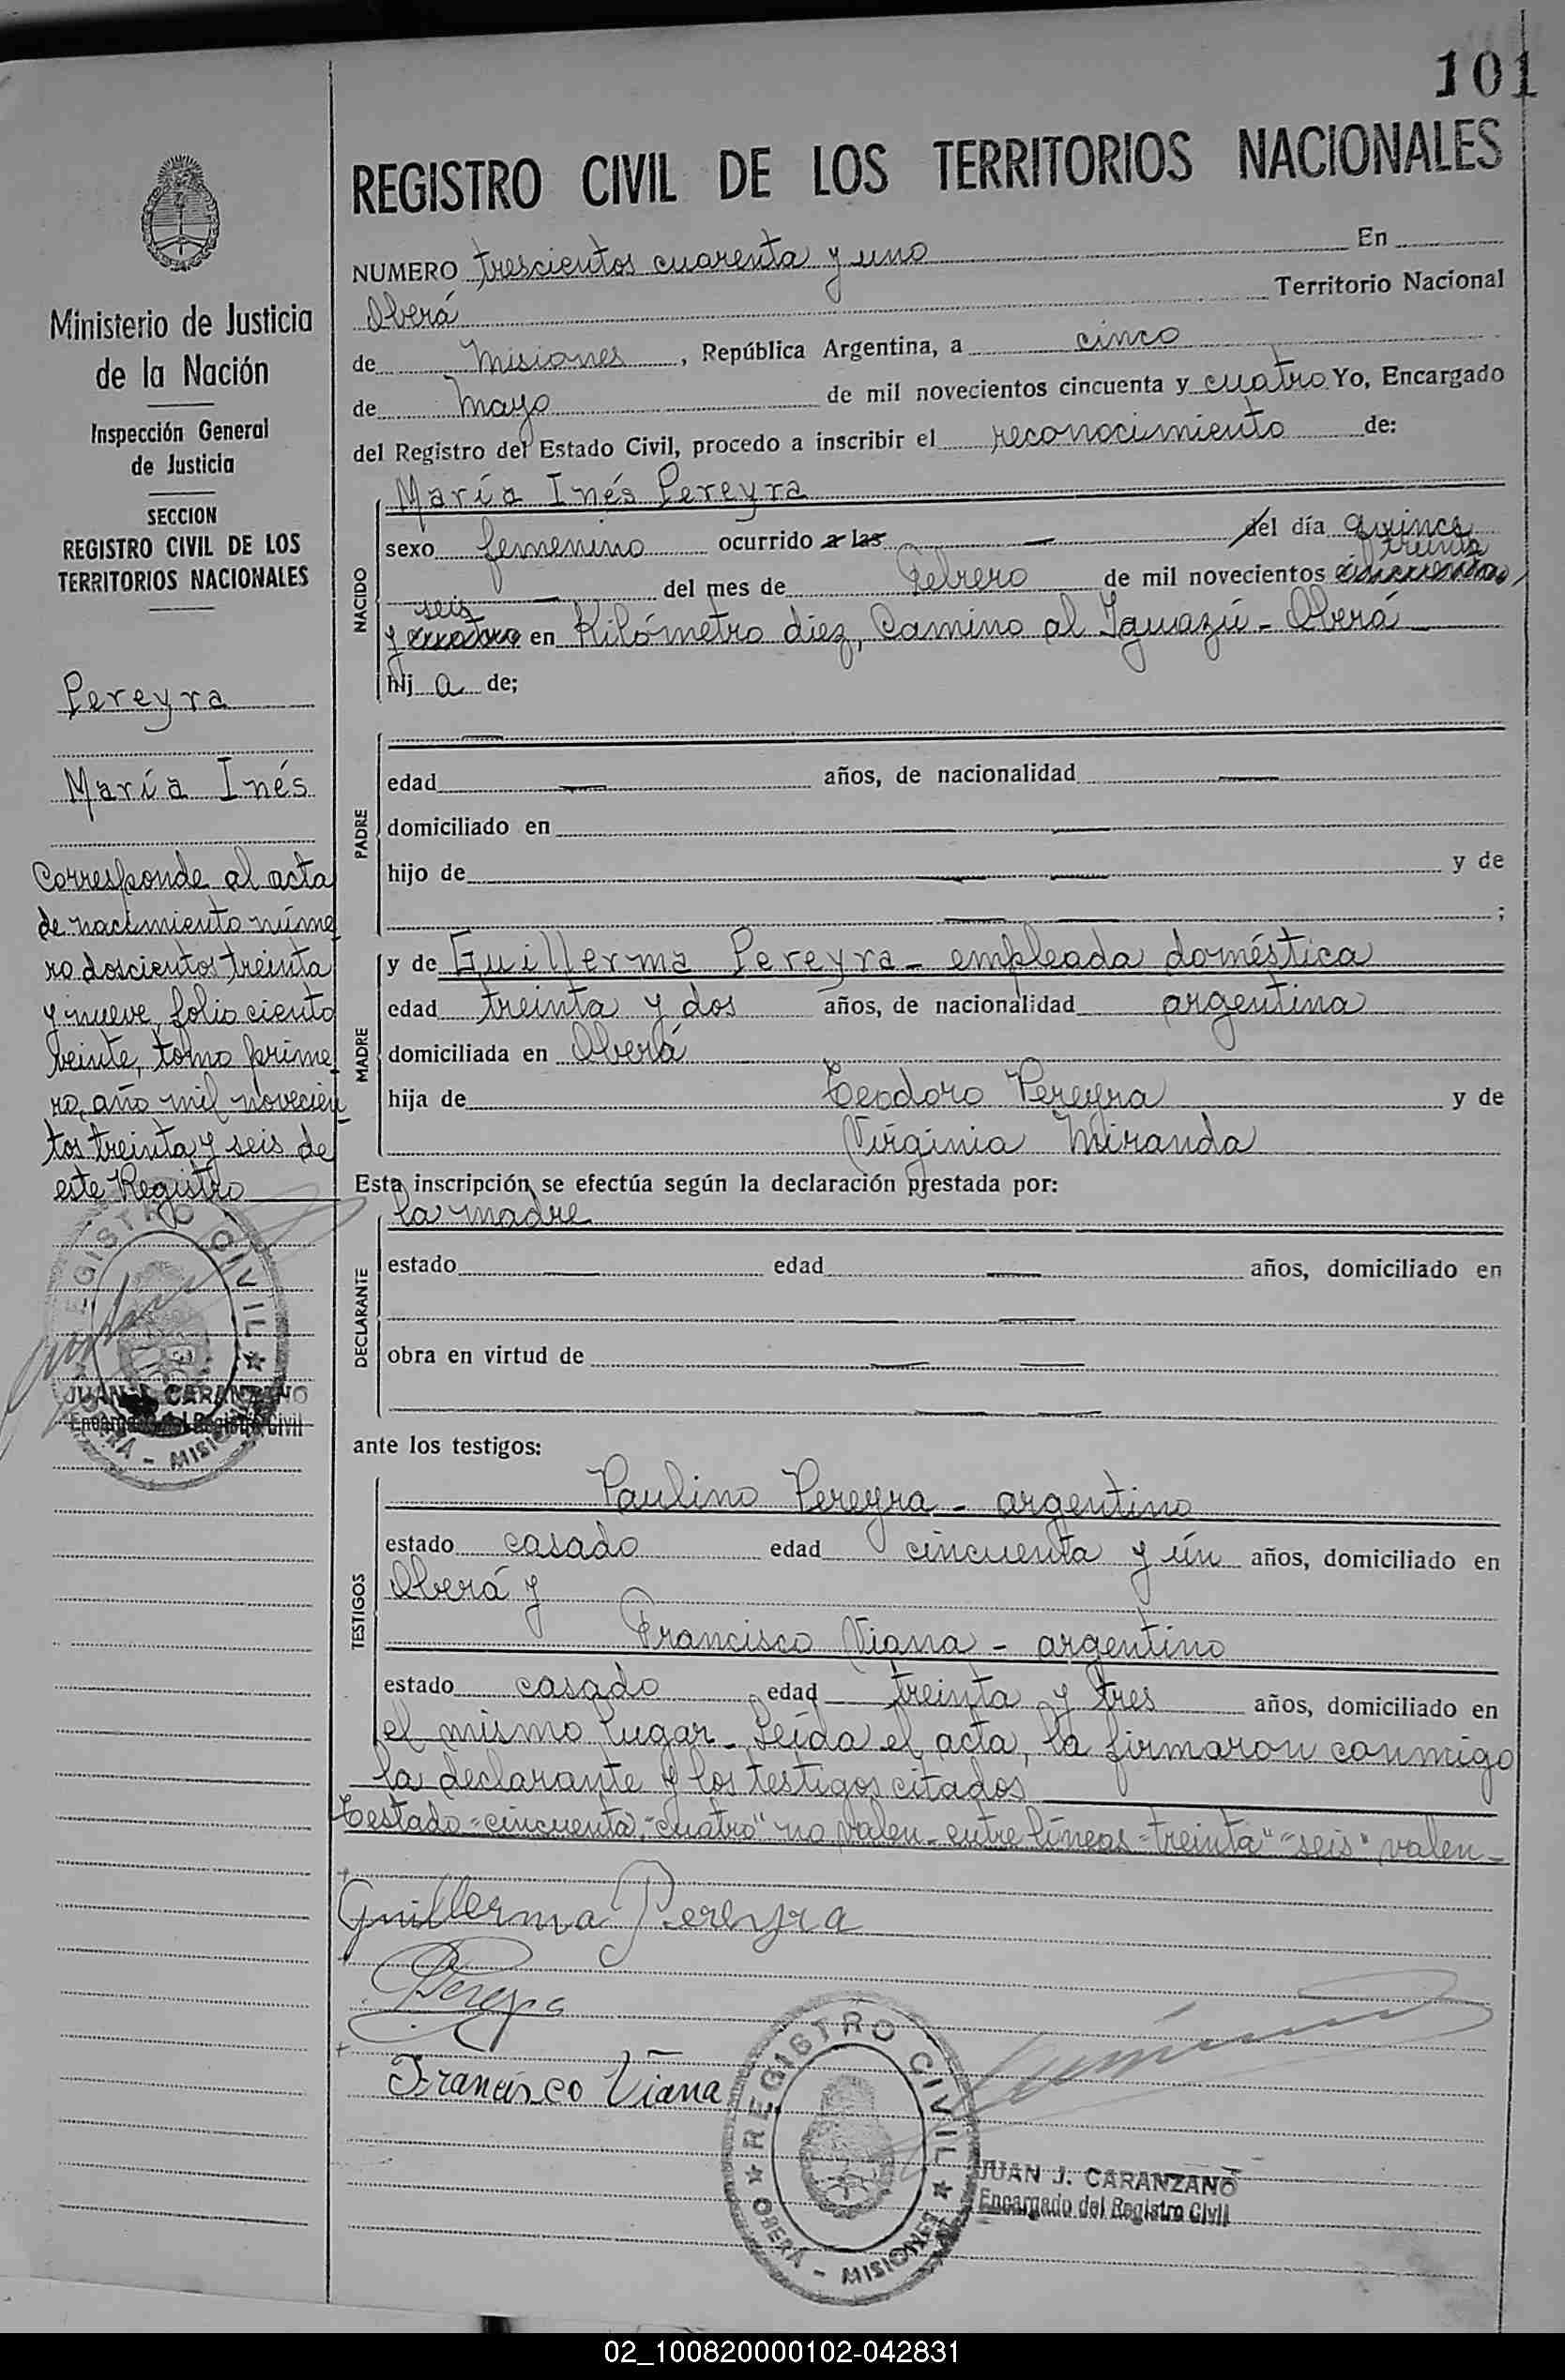 101
REGISTRO CIVIL DE LOS TERRITORIOS NACIONALES
NUMERO trescientos cuarenta y uno En
Oberá Territorio Nacional
de Misiones, República Argentina, a cinco
de Mayo de mil novecientos cincuenta y cuatro Yo, Encargado
del Registro del Estado Civil, procedo a inscribir el reconocimiento de:
NACIDO
María Inés Pereyra
sexo femenino ocurrido a las — del día quince
treinta
— del mes de Febrero de mil novecientos cincuenta
seis
y cuatro en Kilómetro diez, Camino al Iguazú - Oberá
hij a de;
PADRE
—
edad — años, de nacionalidad —
domiciliado en — —
hijo de — — y de
— — ;
MADRE
y de Guillerma Pereyra - empleada doméstica
edad treinta y dos años, de nacionalidad argentina
domiciliada en Oberá
hija de Teodoro Pereyra y de
Virginia Miranda
Esta inscripción se efectúa según la declaración prestada por:
DECLARANTE
la madre
estado — edad — años, domiciliado en
— —
obra en virtud de — —
— —
ante los testigos:
TESTIGOS
Paulino Pereyra - argentino
estado casado edad cincuenta y ún años, domiciliado en
Oberá y
Francisco Viana - argentino
estado casado edad treinta y tres años, domiciliado en
el mismo lugar - Leída el acta, la firmaron conmigo
la declarante y los testigos citados
Testado "cincuenta", "cuatro" no valen - entre líneas "treinta" "seis" valen -
Guillerma Pereyra
Pereyra
Francisco Viana
REGISTRO CIVIL
OBERÁ - MISIONES
JUAN J. CARANZANO
Encargado del Registro Civil
Ministerio de Justicia
de la Nación
Inspección General
de Justicia
SECCION
REGISTRO CIVIL DE LOS
TERRITORIOS NACIONALES
Pereyra
María Inés
Corresponde al acta
de nacimiento núme
ro doscientos treinta
y nueve, folio ciento
veinte, tomo prime
ro, año mil novecien
tos treinta y seis de
este Registro
REGISTRO CIVIL
OBERÁ - MISIONES
JUAN J. CARANZANO
Encargado del Registro Civil
02_100820000102-042831